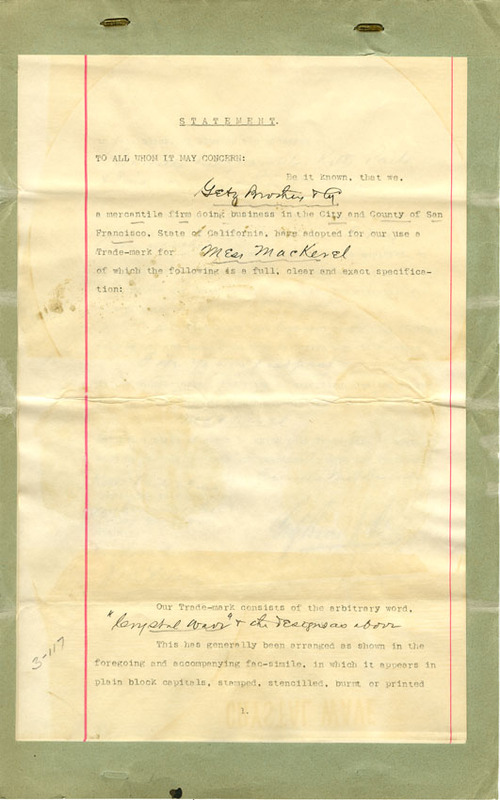 STATEMENT.
TO ALL WHOM IT MAY CONCERN:
Be it Known, that we,
Getz Brothers & Co
a mercantile firm doing business in the City and County of San
Francisco, State of California, have adopted for our use a
Trade-mark for Mess Mackerel
of which the following is a full, clear and exact specifica-
tion:
Our Trade-mark consists of the arbitrary word,
"Crystal Wave" & the designs as above
This has generally been arranged as shown in the
foregoing and accompanying fac-simile, in which it appears in
plain block capitals, stamped, stencilled, burnt or printed
1.
3-117
CRYSTAL WAVE